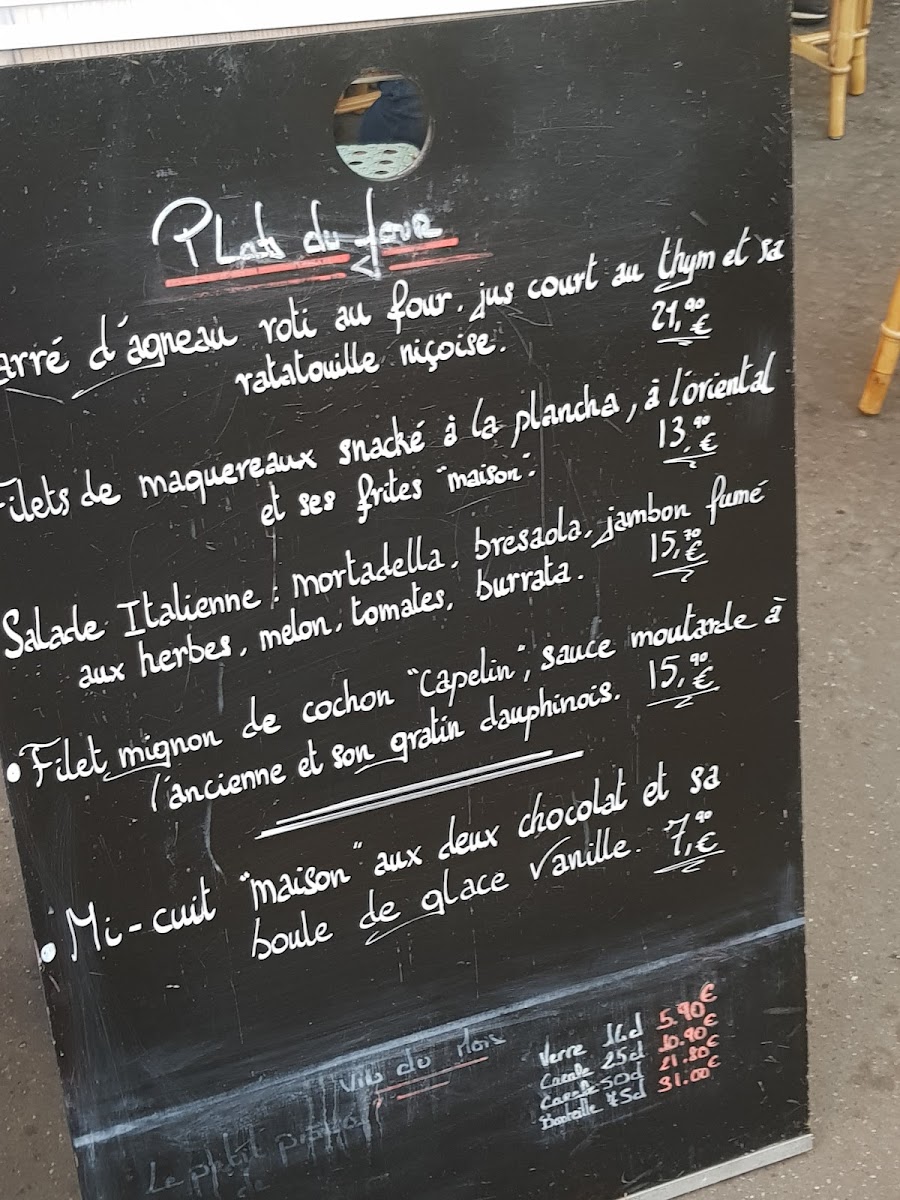 Plats du jour
arré d'agneau roti au four, jus court au thym et sa
ratatouille niçoise. 21,90€
Filets de maquereaux snacké à la plancha, à l'oriental
et ses frites "maison". 13,90€
Salade Italienne : mortadella, bresaola, jambon fumé
aux herbes, melon, tomates, burrata. 15,70€
• Filet mignon de cochon "Capelin", sauce moutarde à
l'ancienne et son gratin dauphinois. 15,90€
• Mi-cuit "maison" aux deux chocolat et sa
boule de glace vanille. 7,90€
Vin du Mois
Verre 5.90€
25cl 10.90€
50cl 21.80€
Bouteille 31.00€
Le ptit
de